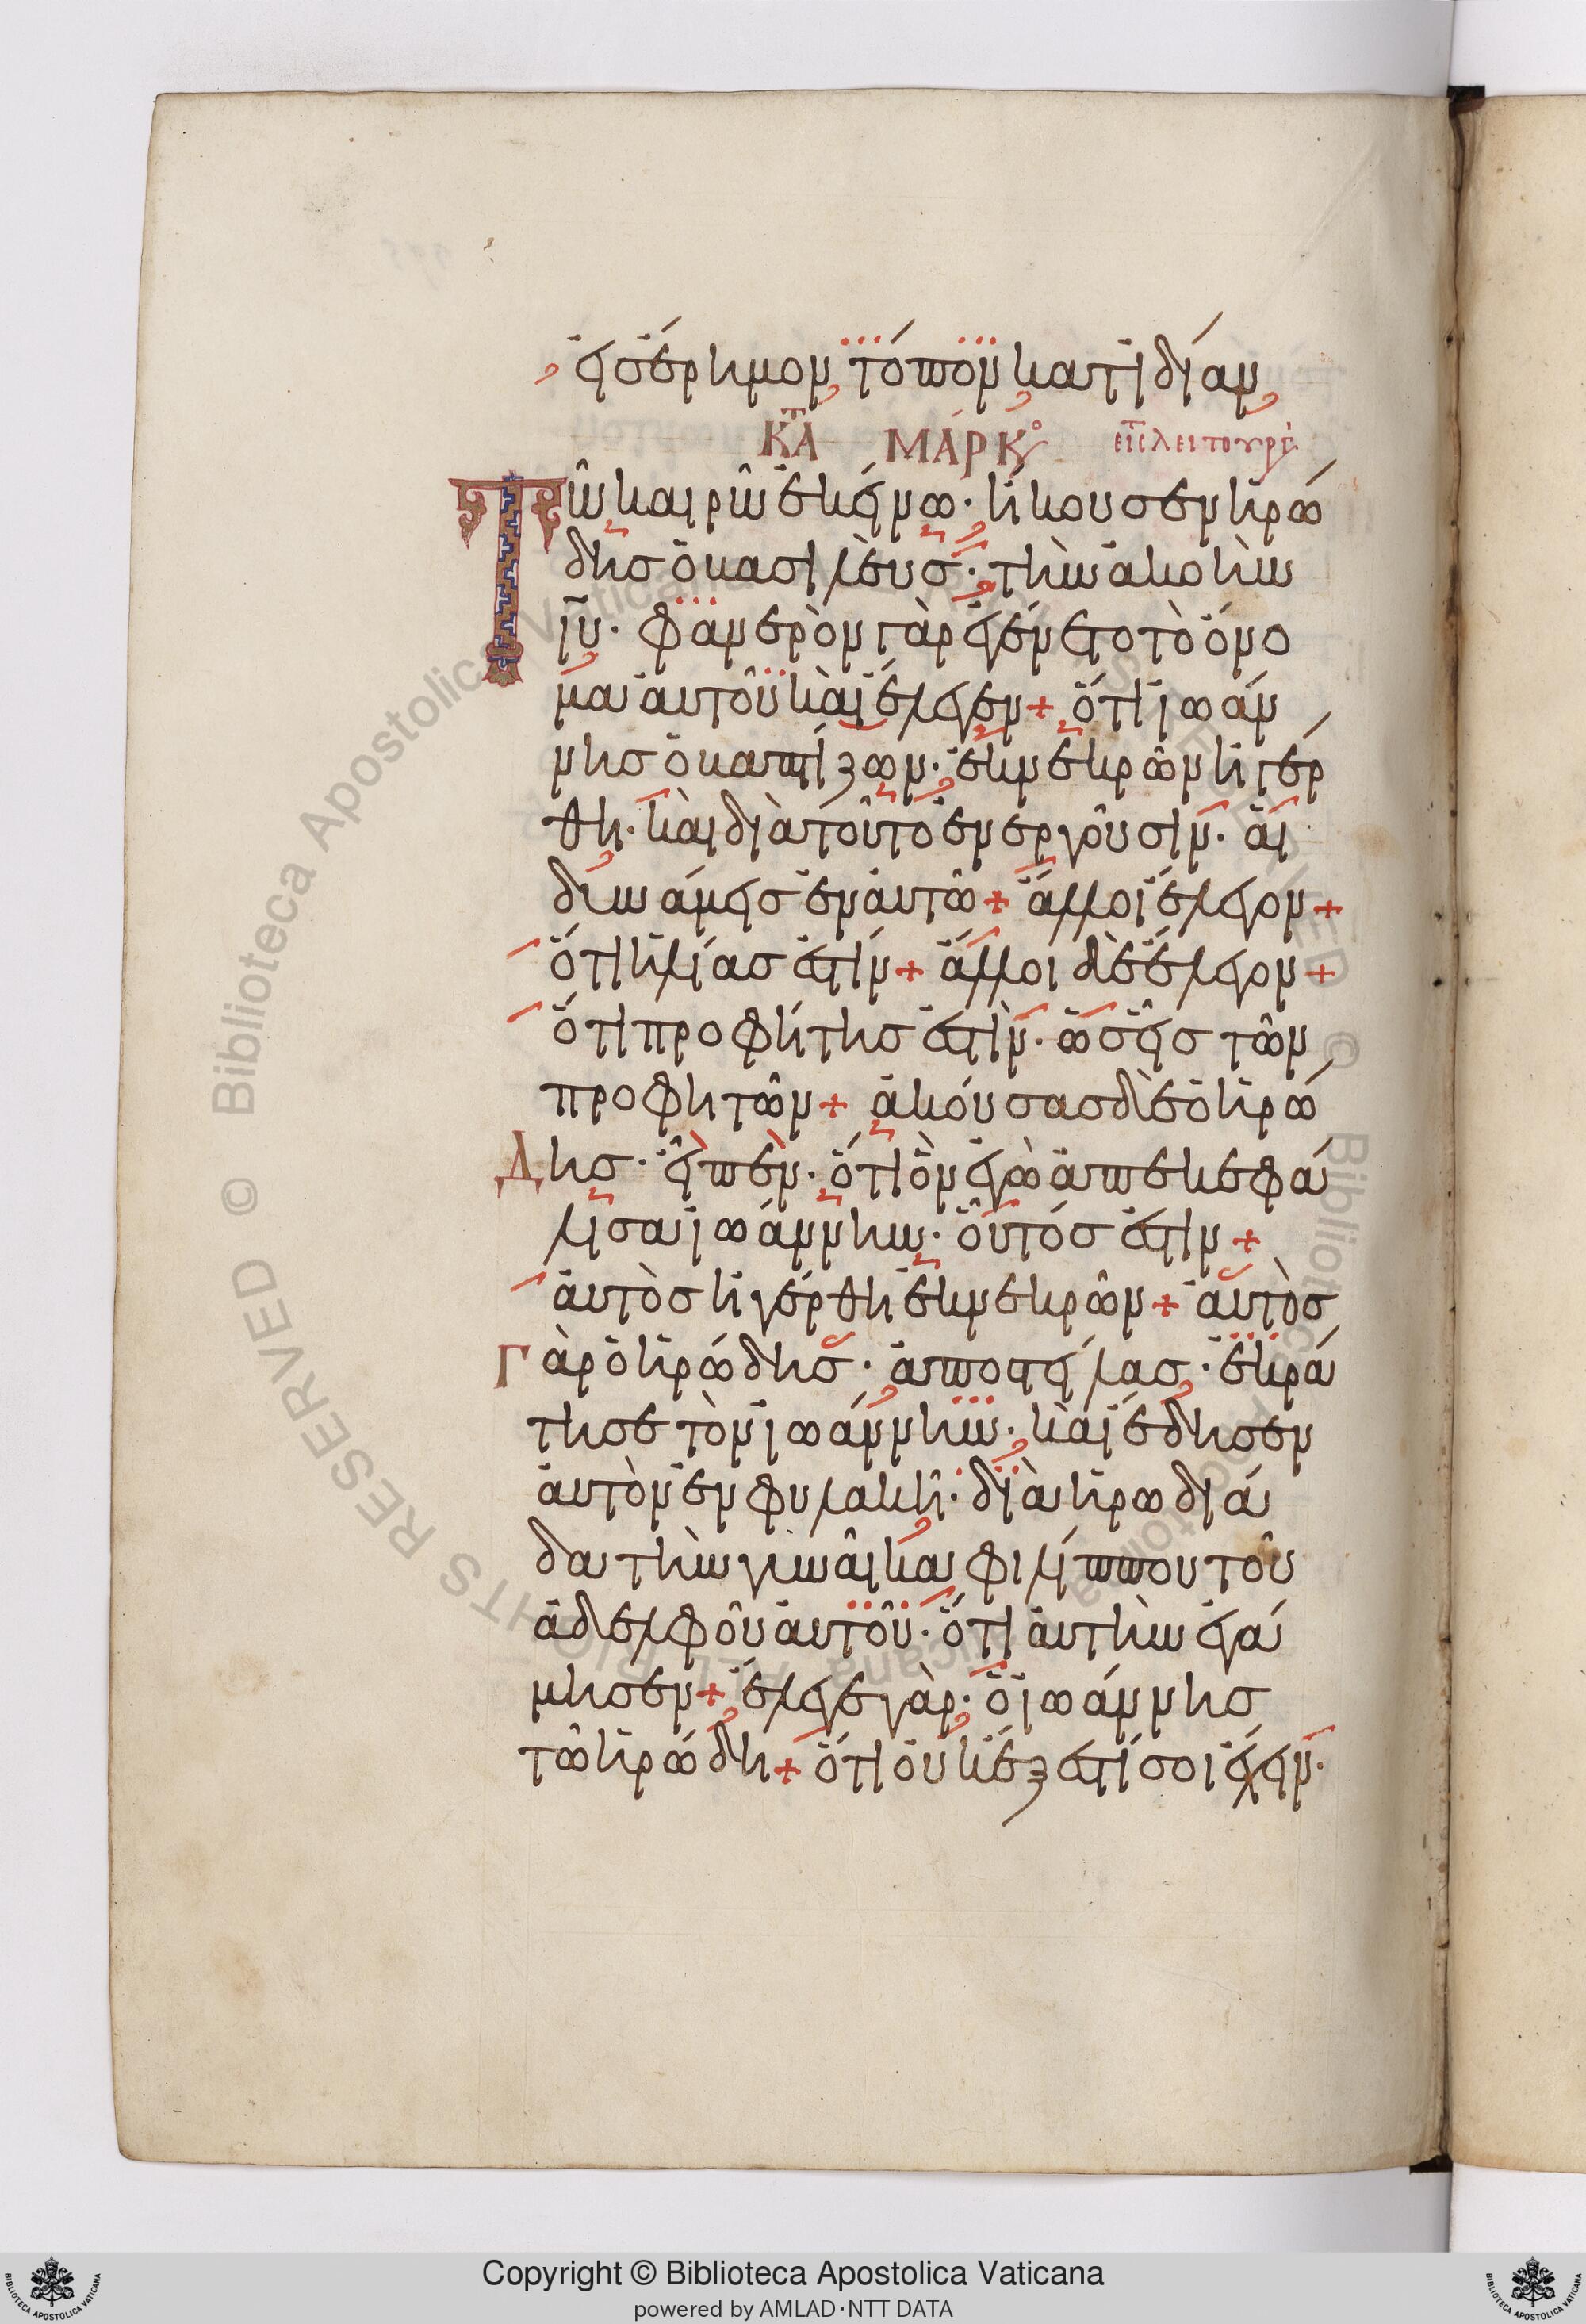 εἰς ἔρημον τόπον κατιδίαν
ΚΤΑ ΜΑΡΚ εἰς λειτουργ
Τῶ καιρῶ ἐκείνω· ἤκουσεν ἡρώ
δης ὁ βασιλεὺς· τὴν ἀκοὴν
ιυ· φανερὸν γὰρ ἐγένετο τὸ ὄνο
μα αὐτοῦ καὶ ἔλεγεν + ὅτι ἰωάν
νης ὁ βαπτίζων· ἐκ νεκρῶν ἠγέρ
θη· καὶ διὰ τοῦτο ἐνεργοῦσιν· αἱ
δυνάμεις ἐν αὐτῶ + ἄλλοι ἔλεγον +
ὅτι ἠλίας ἐστίν + ἄλλοι δὲ ἔλεγον +
ὅτι προφήτης ἐστὶν· ὡς εἷς τῶν
προφητῶν + ἀκούσας δὲ ὁ ἡρώ
Δης· εἶπεν· ὅτι ὃν ἐγὼ ἀπεκεφά
λισα ἰωάννην· οὗτός ἐστιν +
αὐτὸς ἠγέρθη ἐκ νεκρῶν + αὐτὸς
Γὰρ ὁ ἡρώδης· ἀποστείλας· ἐκρά
τησε τὸν ἰωάννην· καὶ ἔδησεν
αὐτὸν ἐν φυλακῆ· διὰ ἡρωδιά
δα τὴν γυναῖκα φιλίππου τοῦ
ἀδελφοῦ αὐτοῦ· ὅτι αὐτὴν ἐγά
μησεν + ἔλεγε γὰρ· ὁ ἰωάννης
τῶ ἡρώδη + ὅτι οὐκ ἔξεστί σοι ἔχειν·
© Biblioteca Apostolica Vaticana ALL RIGHTS RESERVED
Copyright © Biblioteca Apostolica Vaticana
powered by AMLAD·NTT DATA
BIBLIOTECA APOSTOLICA VATICANA
BIBLIOTECA APOSTOLICA VATICANA